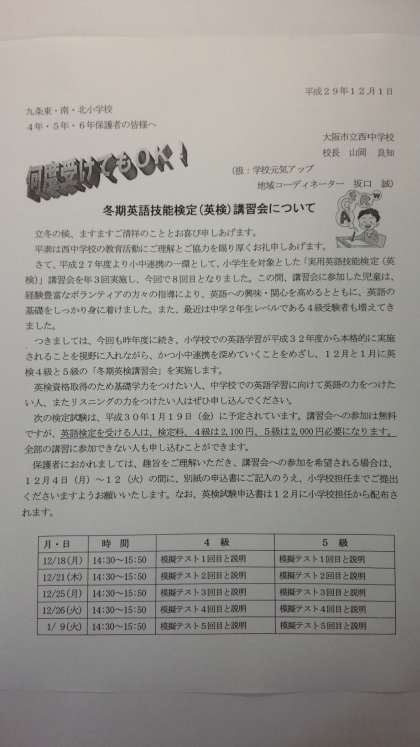 平成29年12月1日
九条東・南・北小学校
4年・5年・6年保護者の皆様へ
大阪市立西中学校
校長 山岡 良知
(担:学校元気アップ
地域コーディネーター 坂口 誠)
何度受けてもOK!
冬期英語技能検定(英検)講習会について
立冬の候、ますますご清祥のこととお喜び申しあげます。
平素は西中学校の教育活動にご理解とご協力を賜り厚くお礼申しあげます。
さて、平成27年度より小中連携の一環として、小学生を対象とした「実用英語技能検定(英
検)」講習会を年3回実施し、今回で8回目となりました。この間、講習会に参加した児童は、
経験豊富なボランティアの方々の指導により、英語への興味・関心を高めるとともに、英語の
基礎をしっかり身に着けました。また、最近は中学2年生レベルである4級受験者も増えてき
ました。
つきましては、今回も昨年度に続き、小学校での英語学習が平成32年度から本格的に実施
されることを視野に入れながら、かつ小中連携を深めていくことをめざし、12月と1月に英
検4級と5級の「冬期英検講習会」を実施します。
英検資格取得のため基礎学力をつけたい人、中学校での英語学習に向けて英語の力をつけた
い人、またリスニングの力をつけたい人はぜひ申し込んでください。
次の検定試験は、平成30年1月19日(金)に予定されています。講習会への参加は無料
ですが、英語検定を受ける人は、検定料、4級は2,100円、5級は2,000円必要になります。
全部の講習に参加できない人も申し込むことができます。
保護者におかれましては、趣旨をご理解いただき、講習会への参加を希望される場合は、
12月4日(月)〜12(火)の間に、別紙の申込書にご記入のうえ、小学校担任までご提出
くださいますようお願いいたします。なお、英検試験申込書は12月に小学校担任から配布さ
れます。
月・日 時 間 4 級 5 級
12/18(月) 14:30〜15:50 模擬テスト1回目と説明 模擬テスト1回目と説明
12/21(木) 14:30〜15:50 模擬テスト2回目と説明 模擬テスト2回目と説明
12/25(月) 14:30〜15:50 模擬テスト3回目と説明 模擬テスト3回目と説明
12/26(火) 14:30〜15:50 模擬テスト4回目と説明 模擬テスト4回目と説明
1/ 9(火) 14:30〜15:50 模擬テスト5回目と説明 模擬テスト5回目と説明